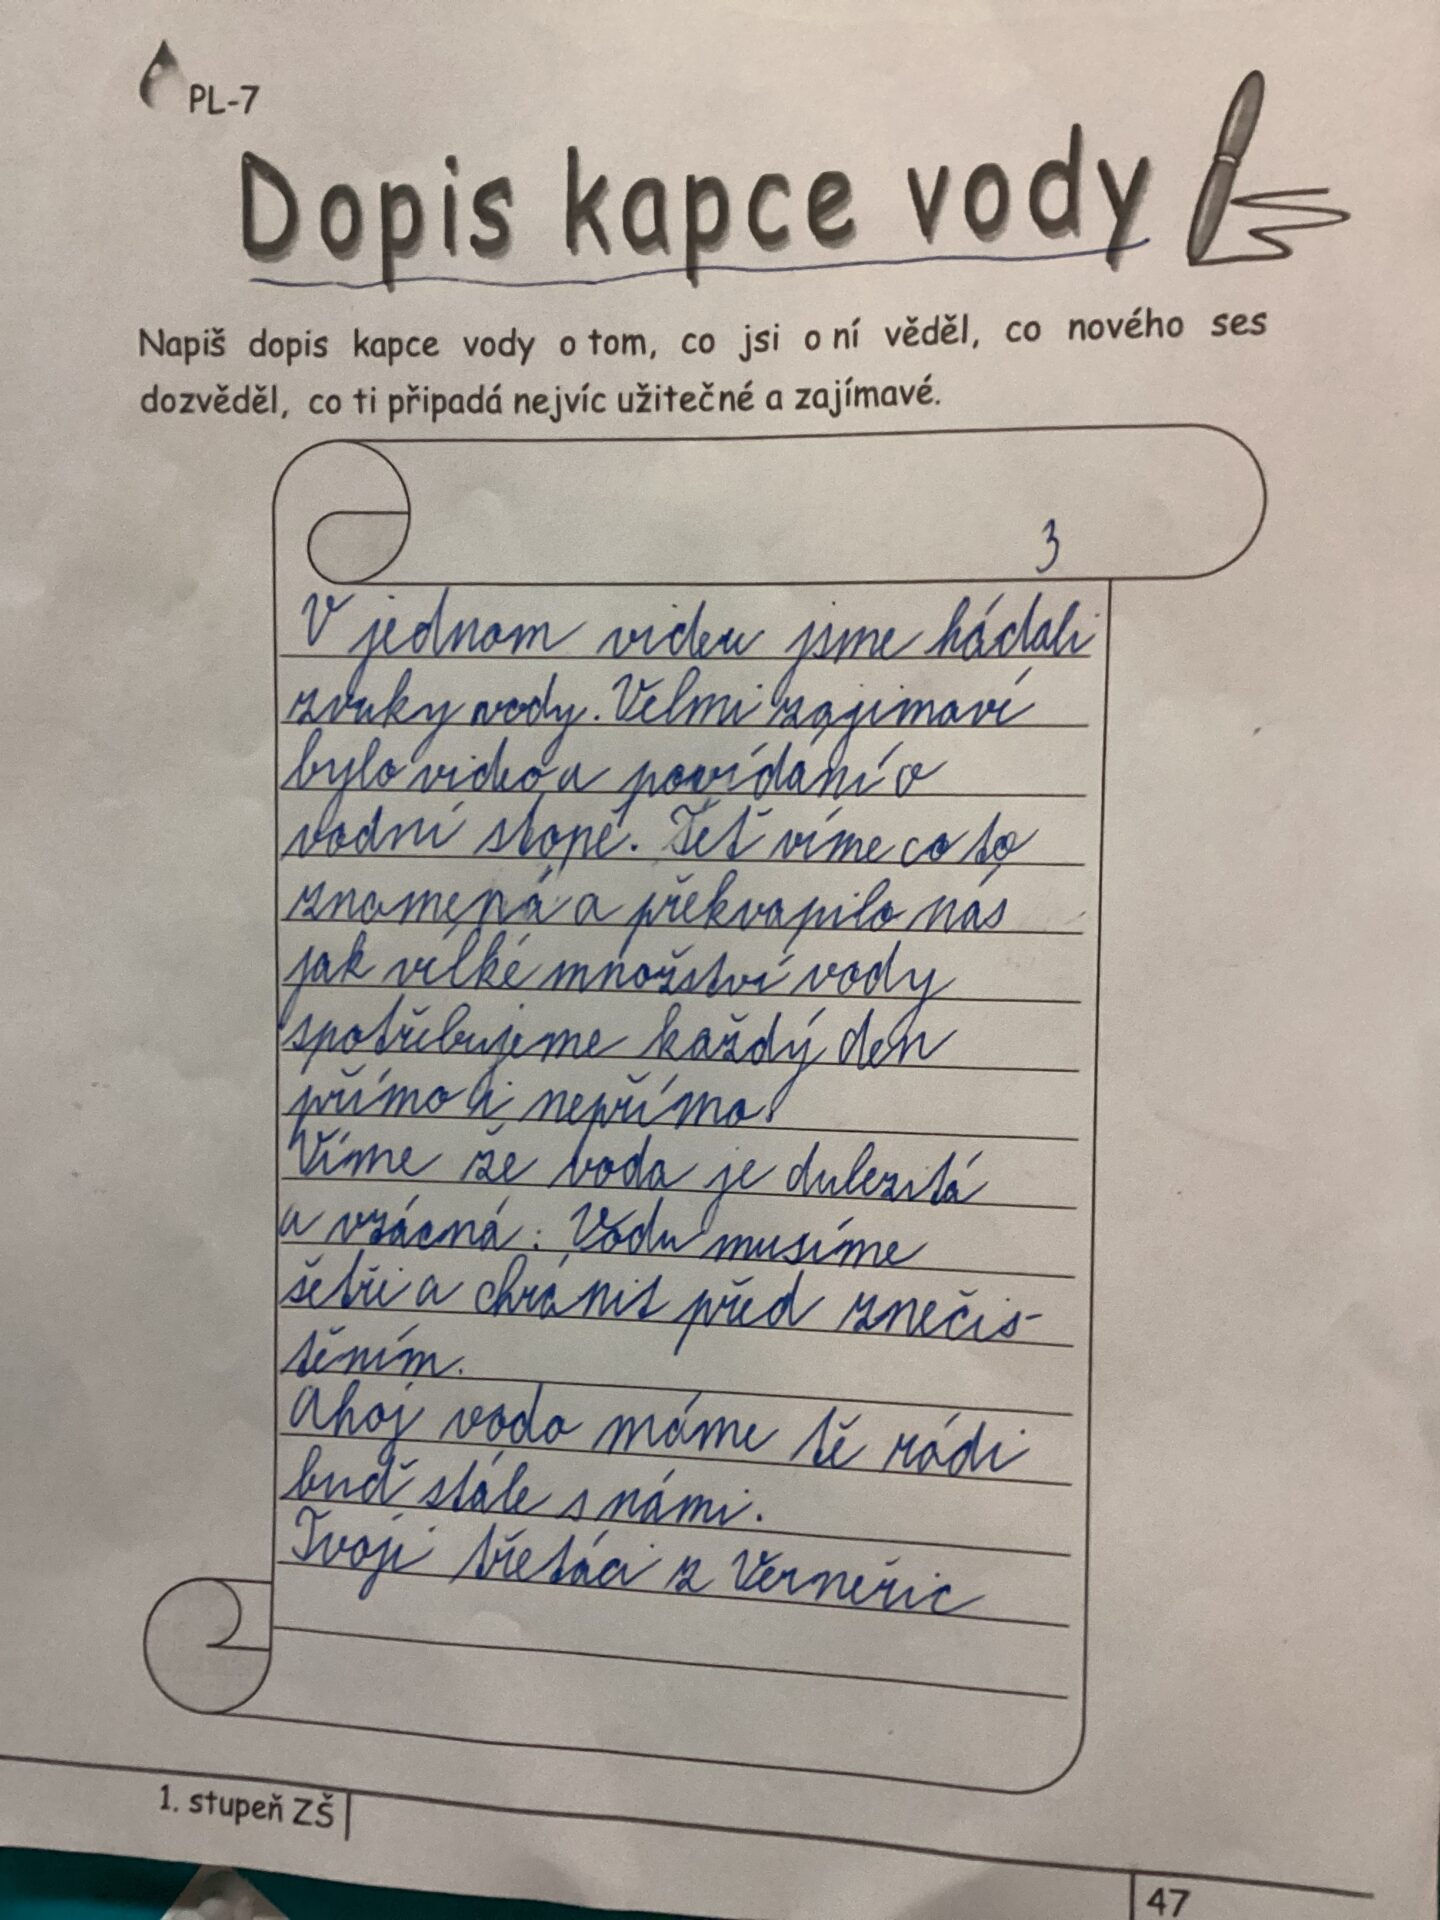 PL-7
Dopis kapce vody
Napiš dopis kapce vody o tom, co jsi o ní věděl, co nového ses
dozvěděl, co ti připadá nejvíc užitečné a zajímavé.
3
V jednom videu jsme hádali
zvuky vody. Velmi zajimaví
bylo video a povídání o
vodní stopě. Teť víme co to
znamená a překvapilo nás
jak velké množství vody
spotřebujeme každý den
přímo i nepřímo.
Víme že voda je dulezitá
a vzácná. Vodu musíme
šetři a chránit před znečis-
těním.
Ahoj vodo máme tě rádi
buď stále s námi.
Tvoji třetáci z Verneřic
1. stupeň ZŠ
47